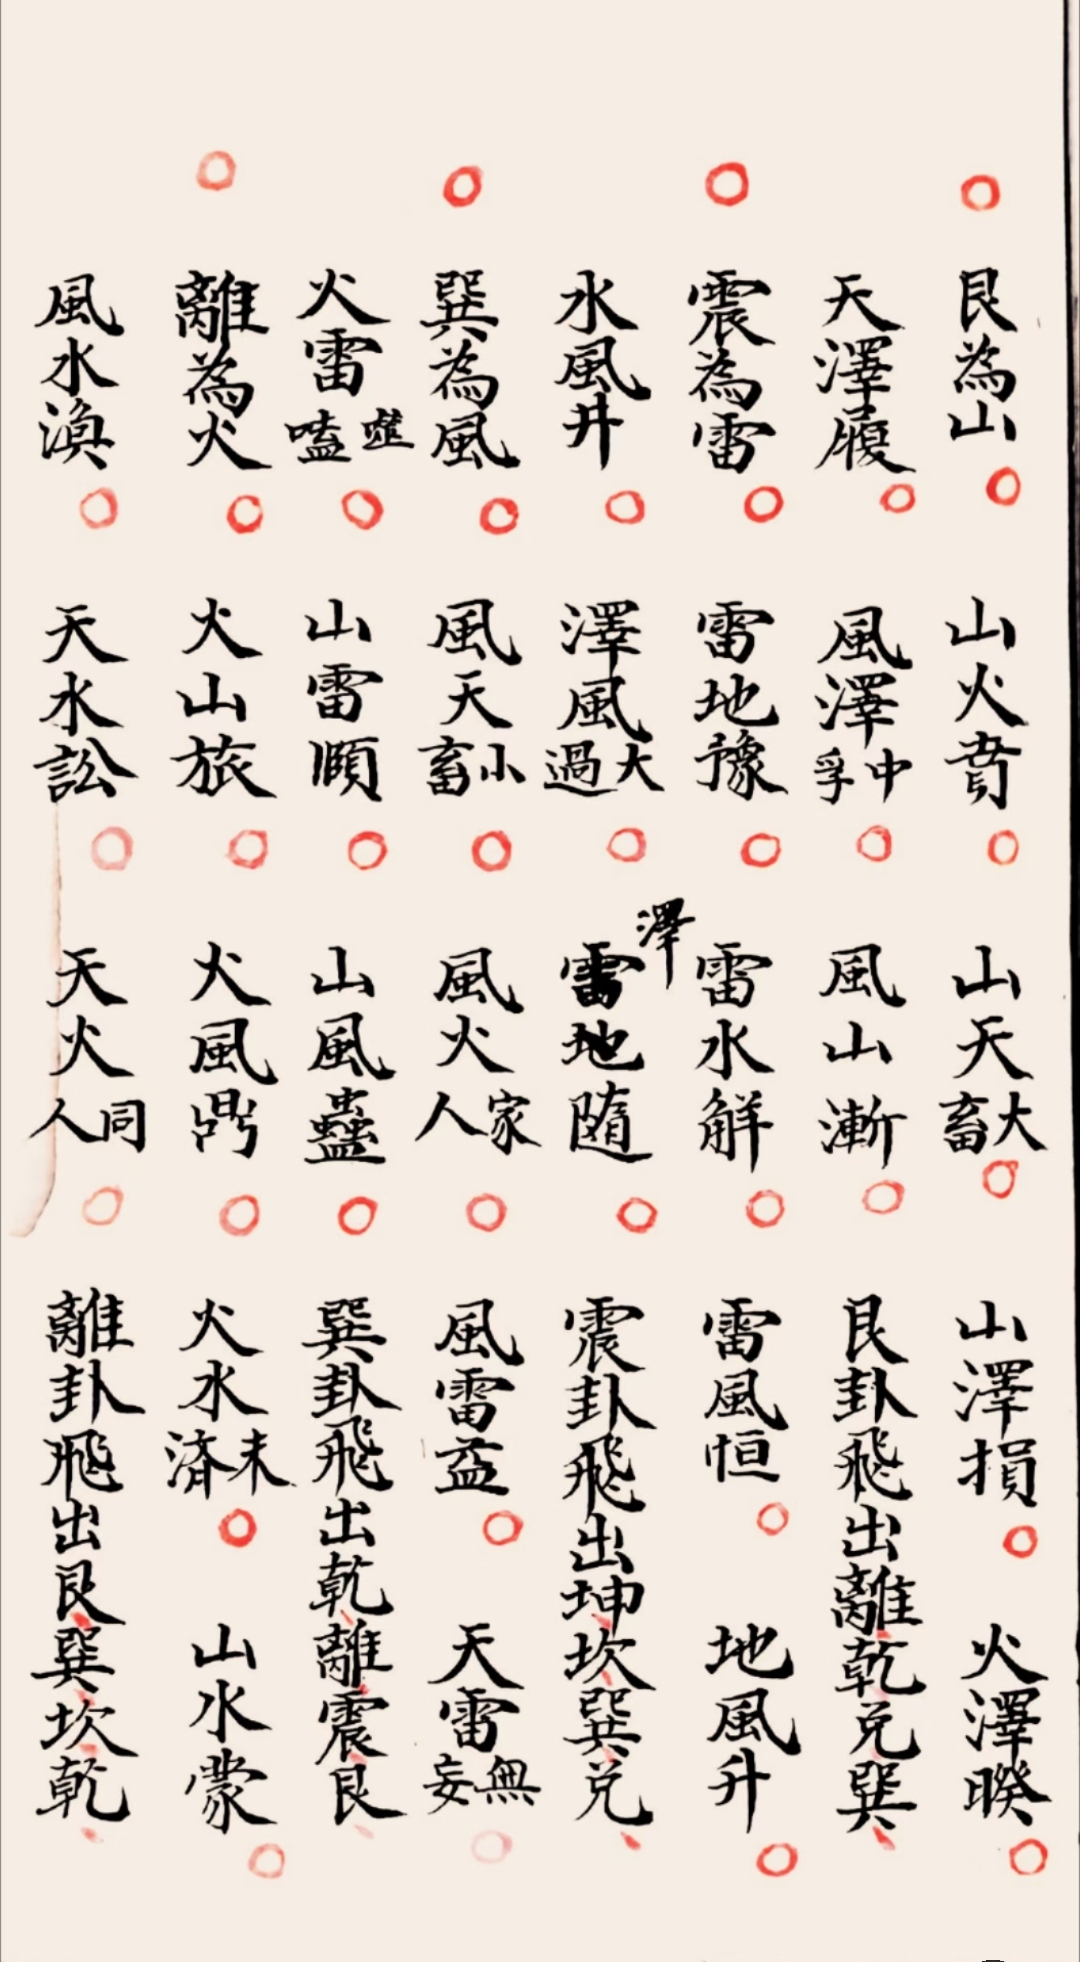 艮為山 山火賁 山天大畜 山澤損 火澤睽
天澤履 風澤中孚 風山漸 艮卦飛出離乾兑巽
震為雷 雷地豫 雷水解 雷風恒 地風升
水風井 澤風大過 澤雷地隨 震卦飛出坤坎巽兑
巽為風 風天小畜 風火家人 風雷益 天雷無妄
火雷噬嗑 山雷頤 山風蠱 巽卦飛出乾離震艮
離為火 火山旅 火風鼎 火水未済 山水蒙
風水渙 天水訟 天火同人 離卦飛出艮巽坎乾